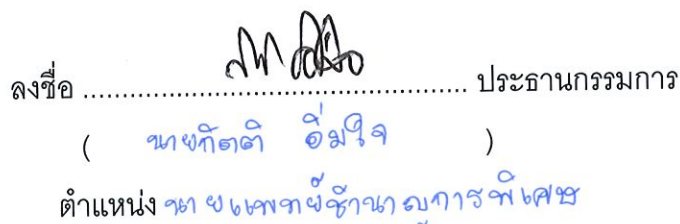 ลงชื่อ ................................................ ประธานกรรมการ
( นายกิตติ อิ่มใจ )
ตำแหน่ง นายแพทย์ชำนาญการพิเศษ